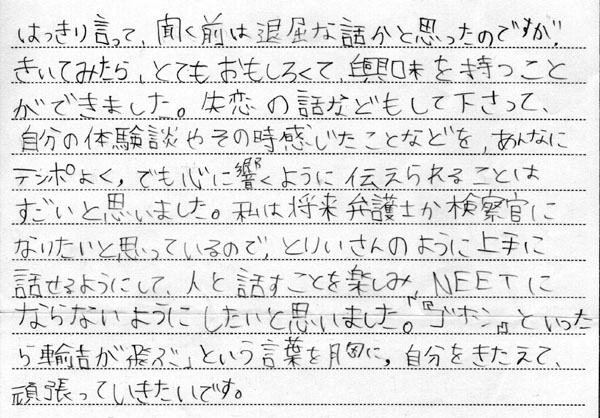 はっきり言って、聞く前は退屈な話かと思ったのですが、
きいてみたら、とてもおもしろくて、興味を持つこと
ができました。失恋の話などもして下さって、
自分の体験談やその時感じたことなどを、あんなに
テンポよく、でも心に響くように伝えられることは
すごいと思いました。私は将来弁護士か検察官に
なりたいと思っているので、とりいさんのように上手に
話せるようにして、人と話すことを楽しみ、NEETに
ならないようにしたいと思いました。「『ゴホン』といった
ら輸吉が飛ぶ」という言葉を胸に、自分をきたえて、
頑張っていきたいです。